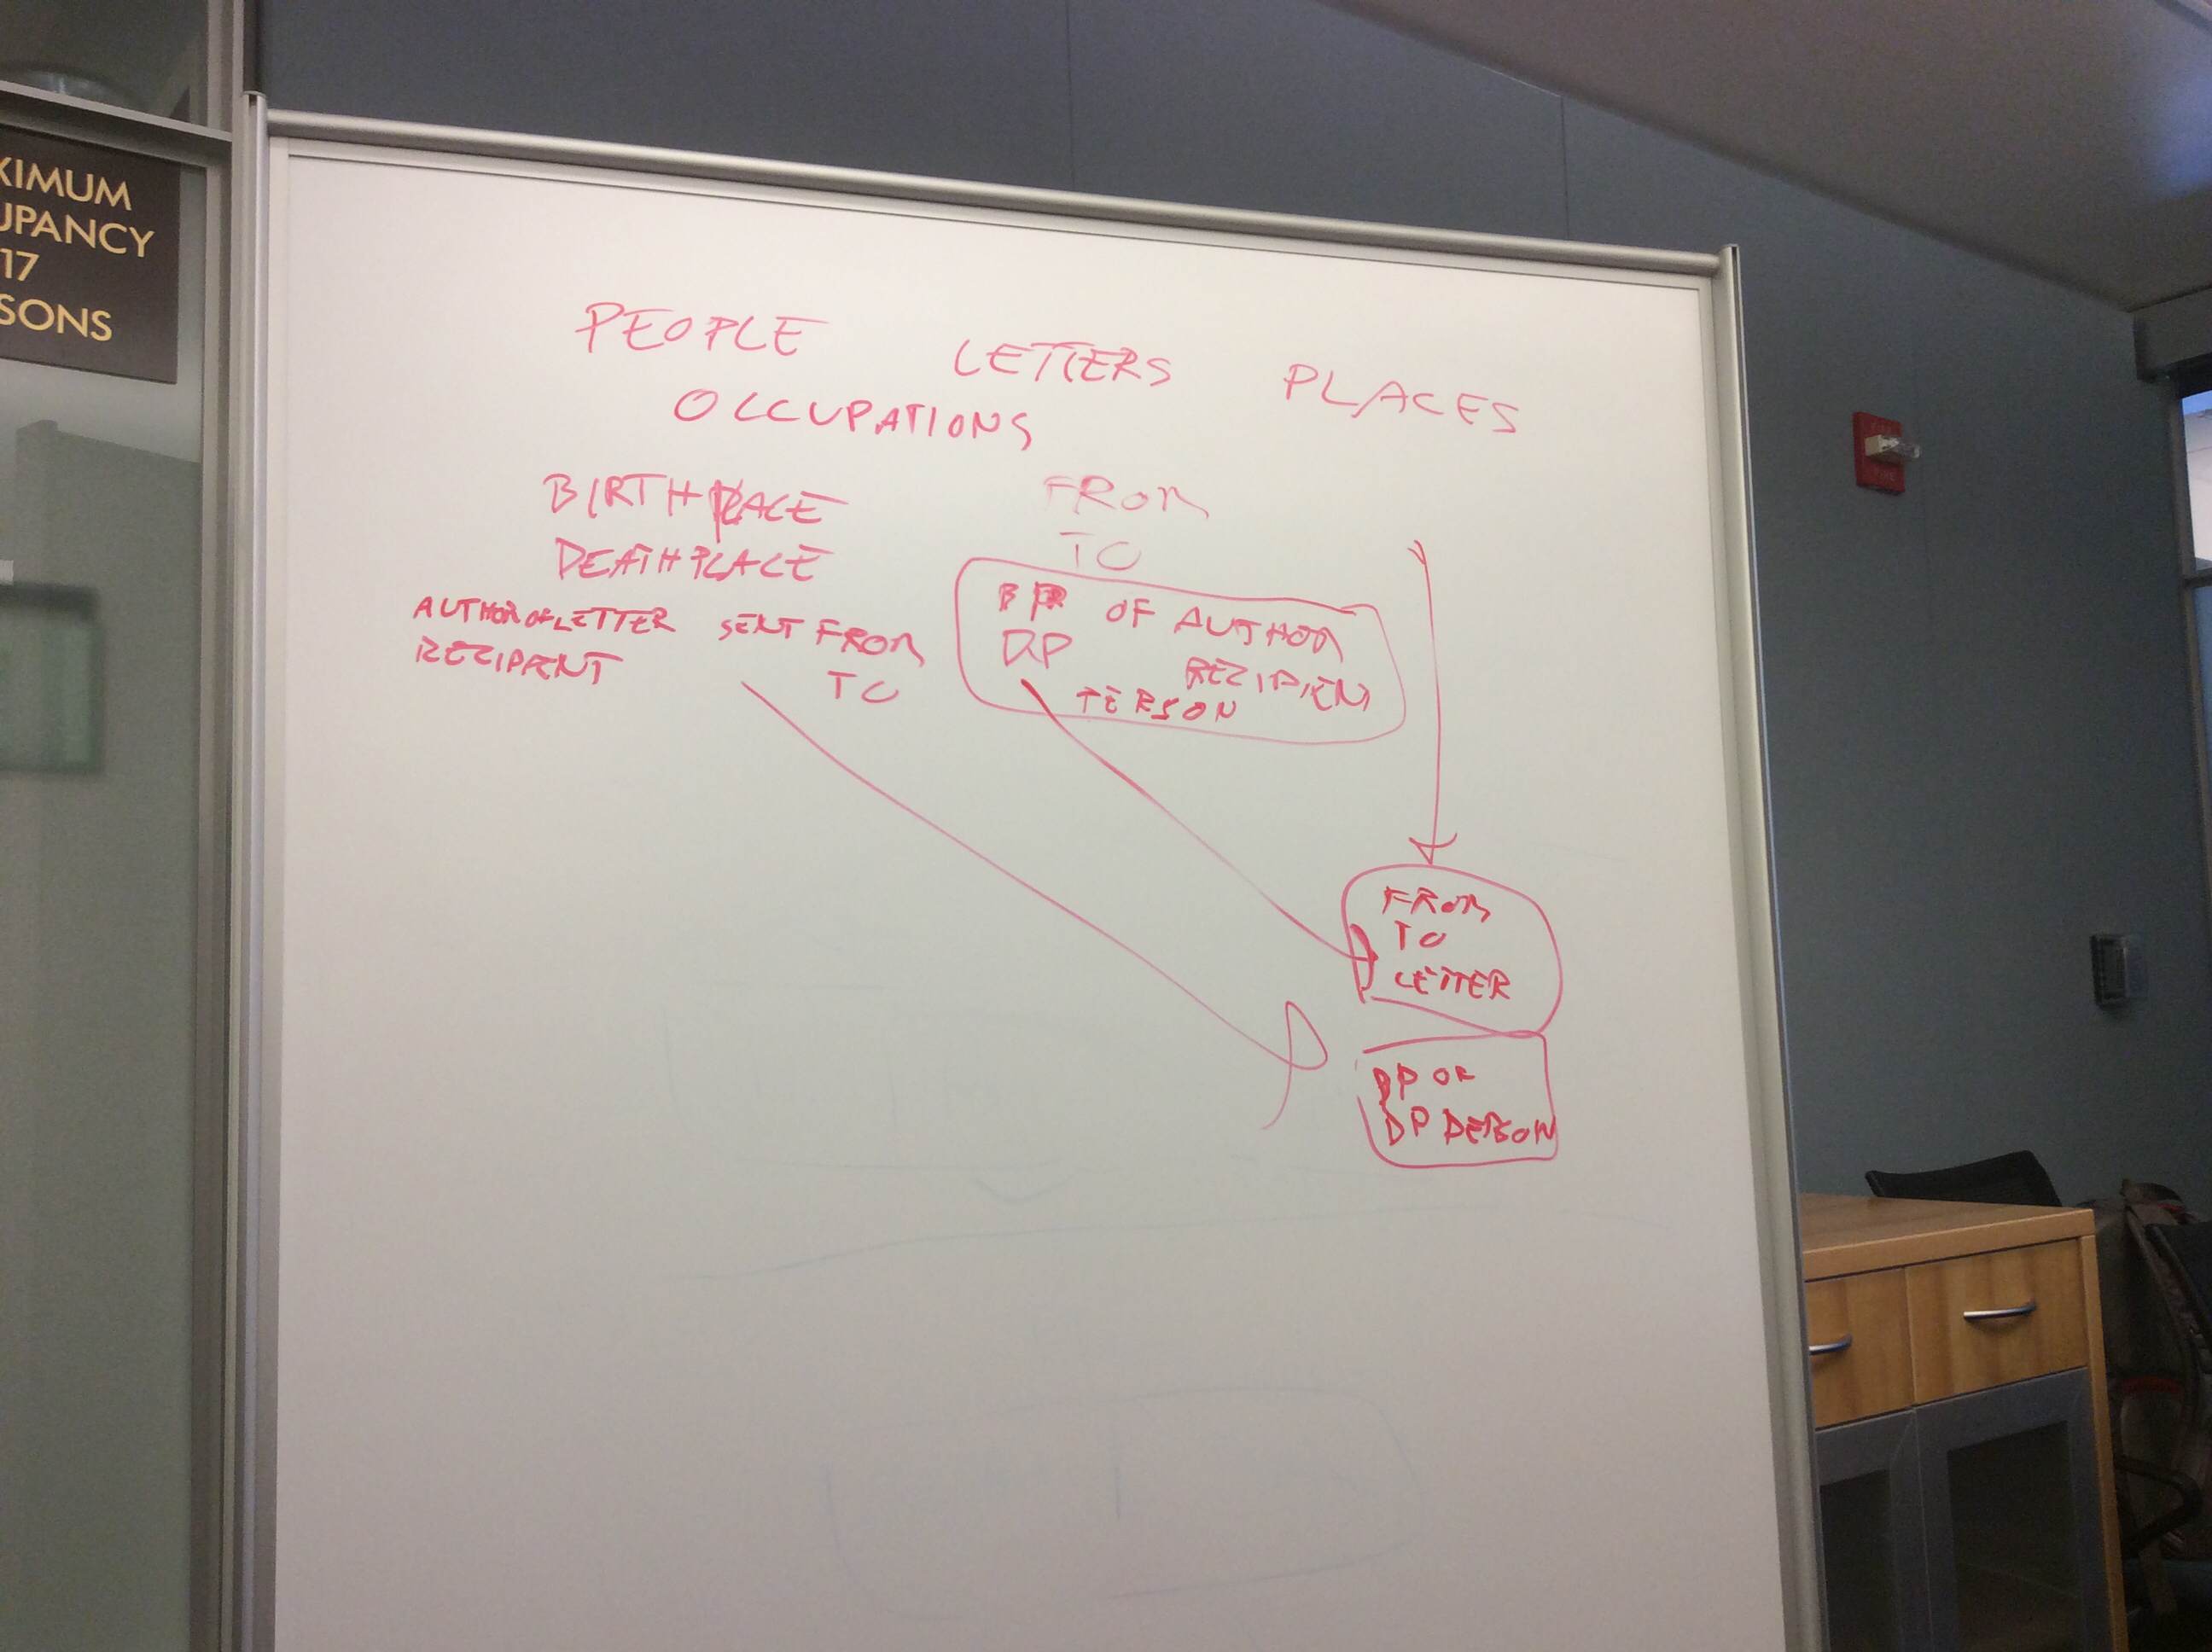 XIMUM
UPANCY
17
SONS
PEOPLE LETTERS PLACES
OCCUPATIONS
BIRTHPLACE
DEATHPLACE
AUTHOR OF LETTER SENT FROM
RECIPIENT TO
FROM
TO
BP OF AUTHOR
DP RECIPIEN
PERSON
FROM
TO
LETTER
BP OF
DP PERSON